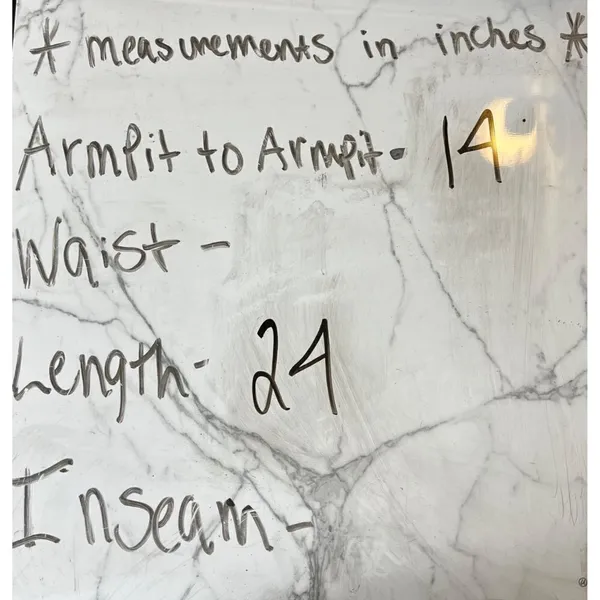 * measurements in inches *
Armpit to Armpit- 14
Waist -
Length- 24
Inseam -
®